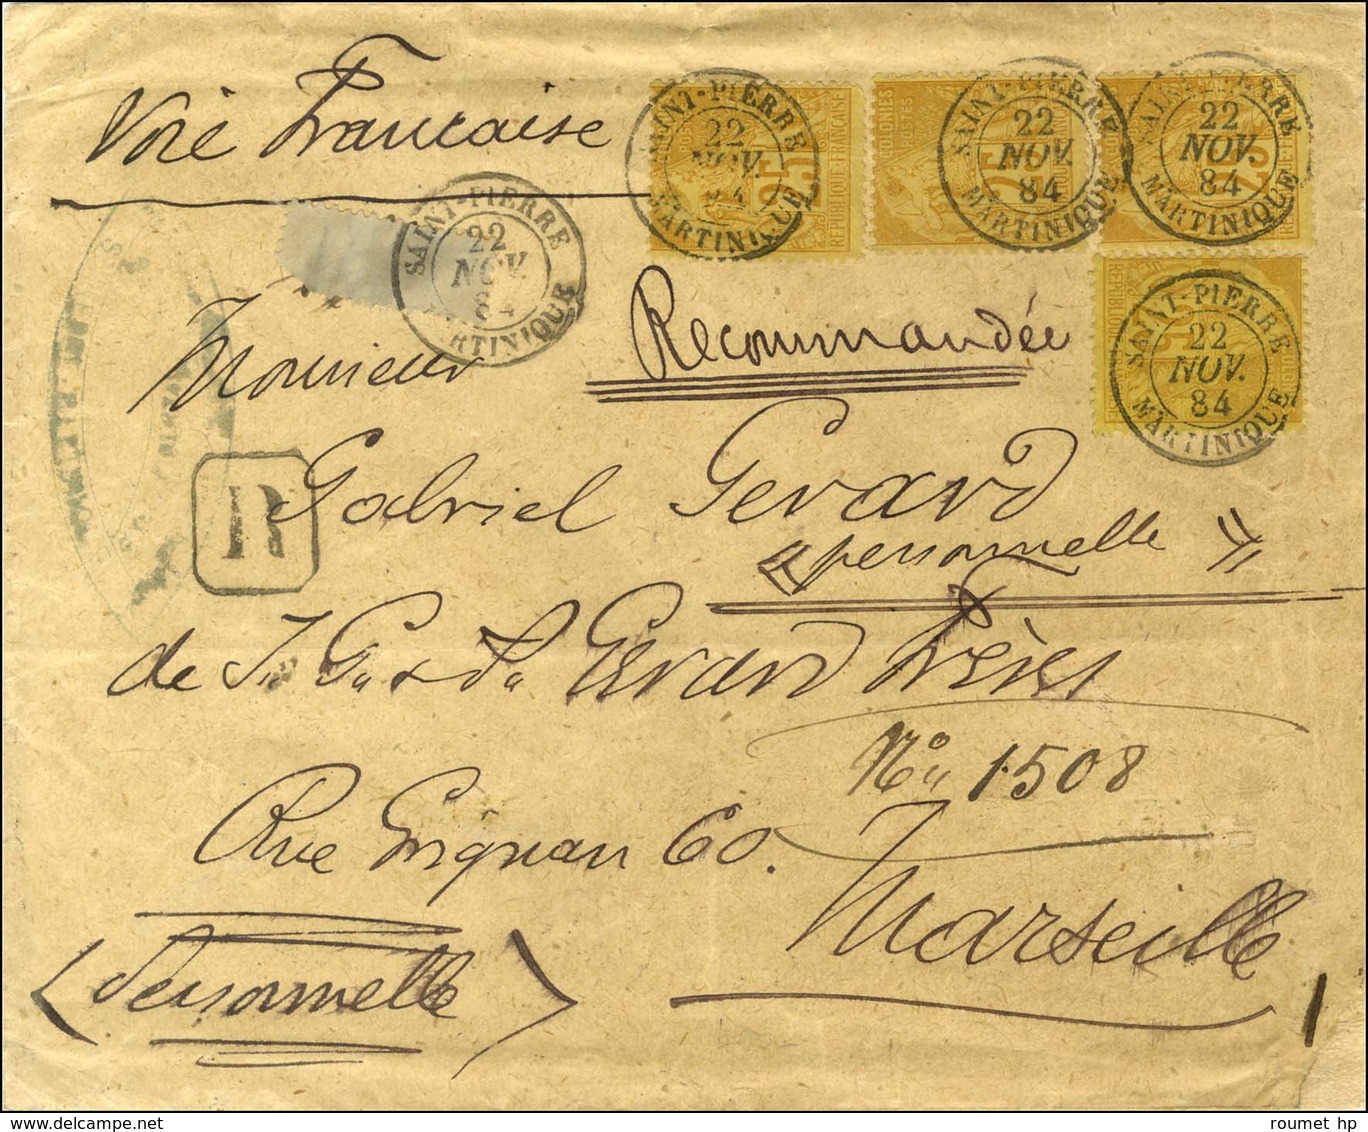 Voie Francaise
SAINT-PIERRE
22
NOV.
84
MARTINIQUE
COLONIES
POSTES
25
REPUBLIQUE FRANÇAISE
SAINT-PIERRE
22
NOV.
84
MARTINIQUE
SAINT-PIERRE
22
NOV.
84
MARTINIQUE
25
SAINT-PIERRE
22
NOV.
84
MARTINIQUE
SAINT-PIERRE
22
NOV.
84
MARTINIQUE
Monsieur
Recommandée
R
Gabriel Gerard
« personnelle »
de J. G. & P. Gerard Frères
No 1508
Rue Grignan 60.
Marseille
(Personnelle)
roumet hp